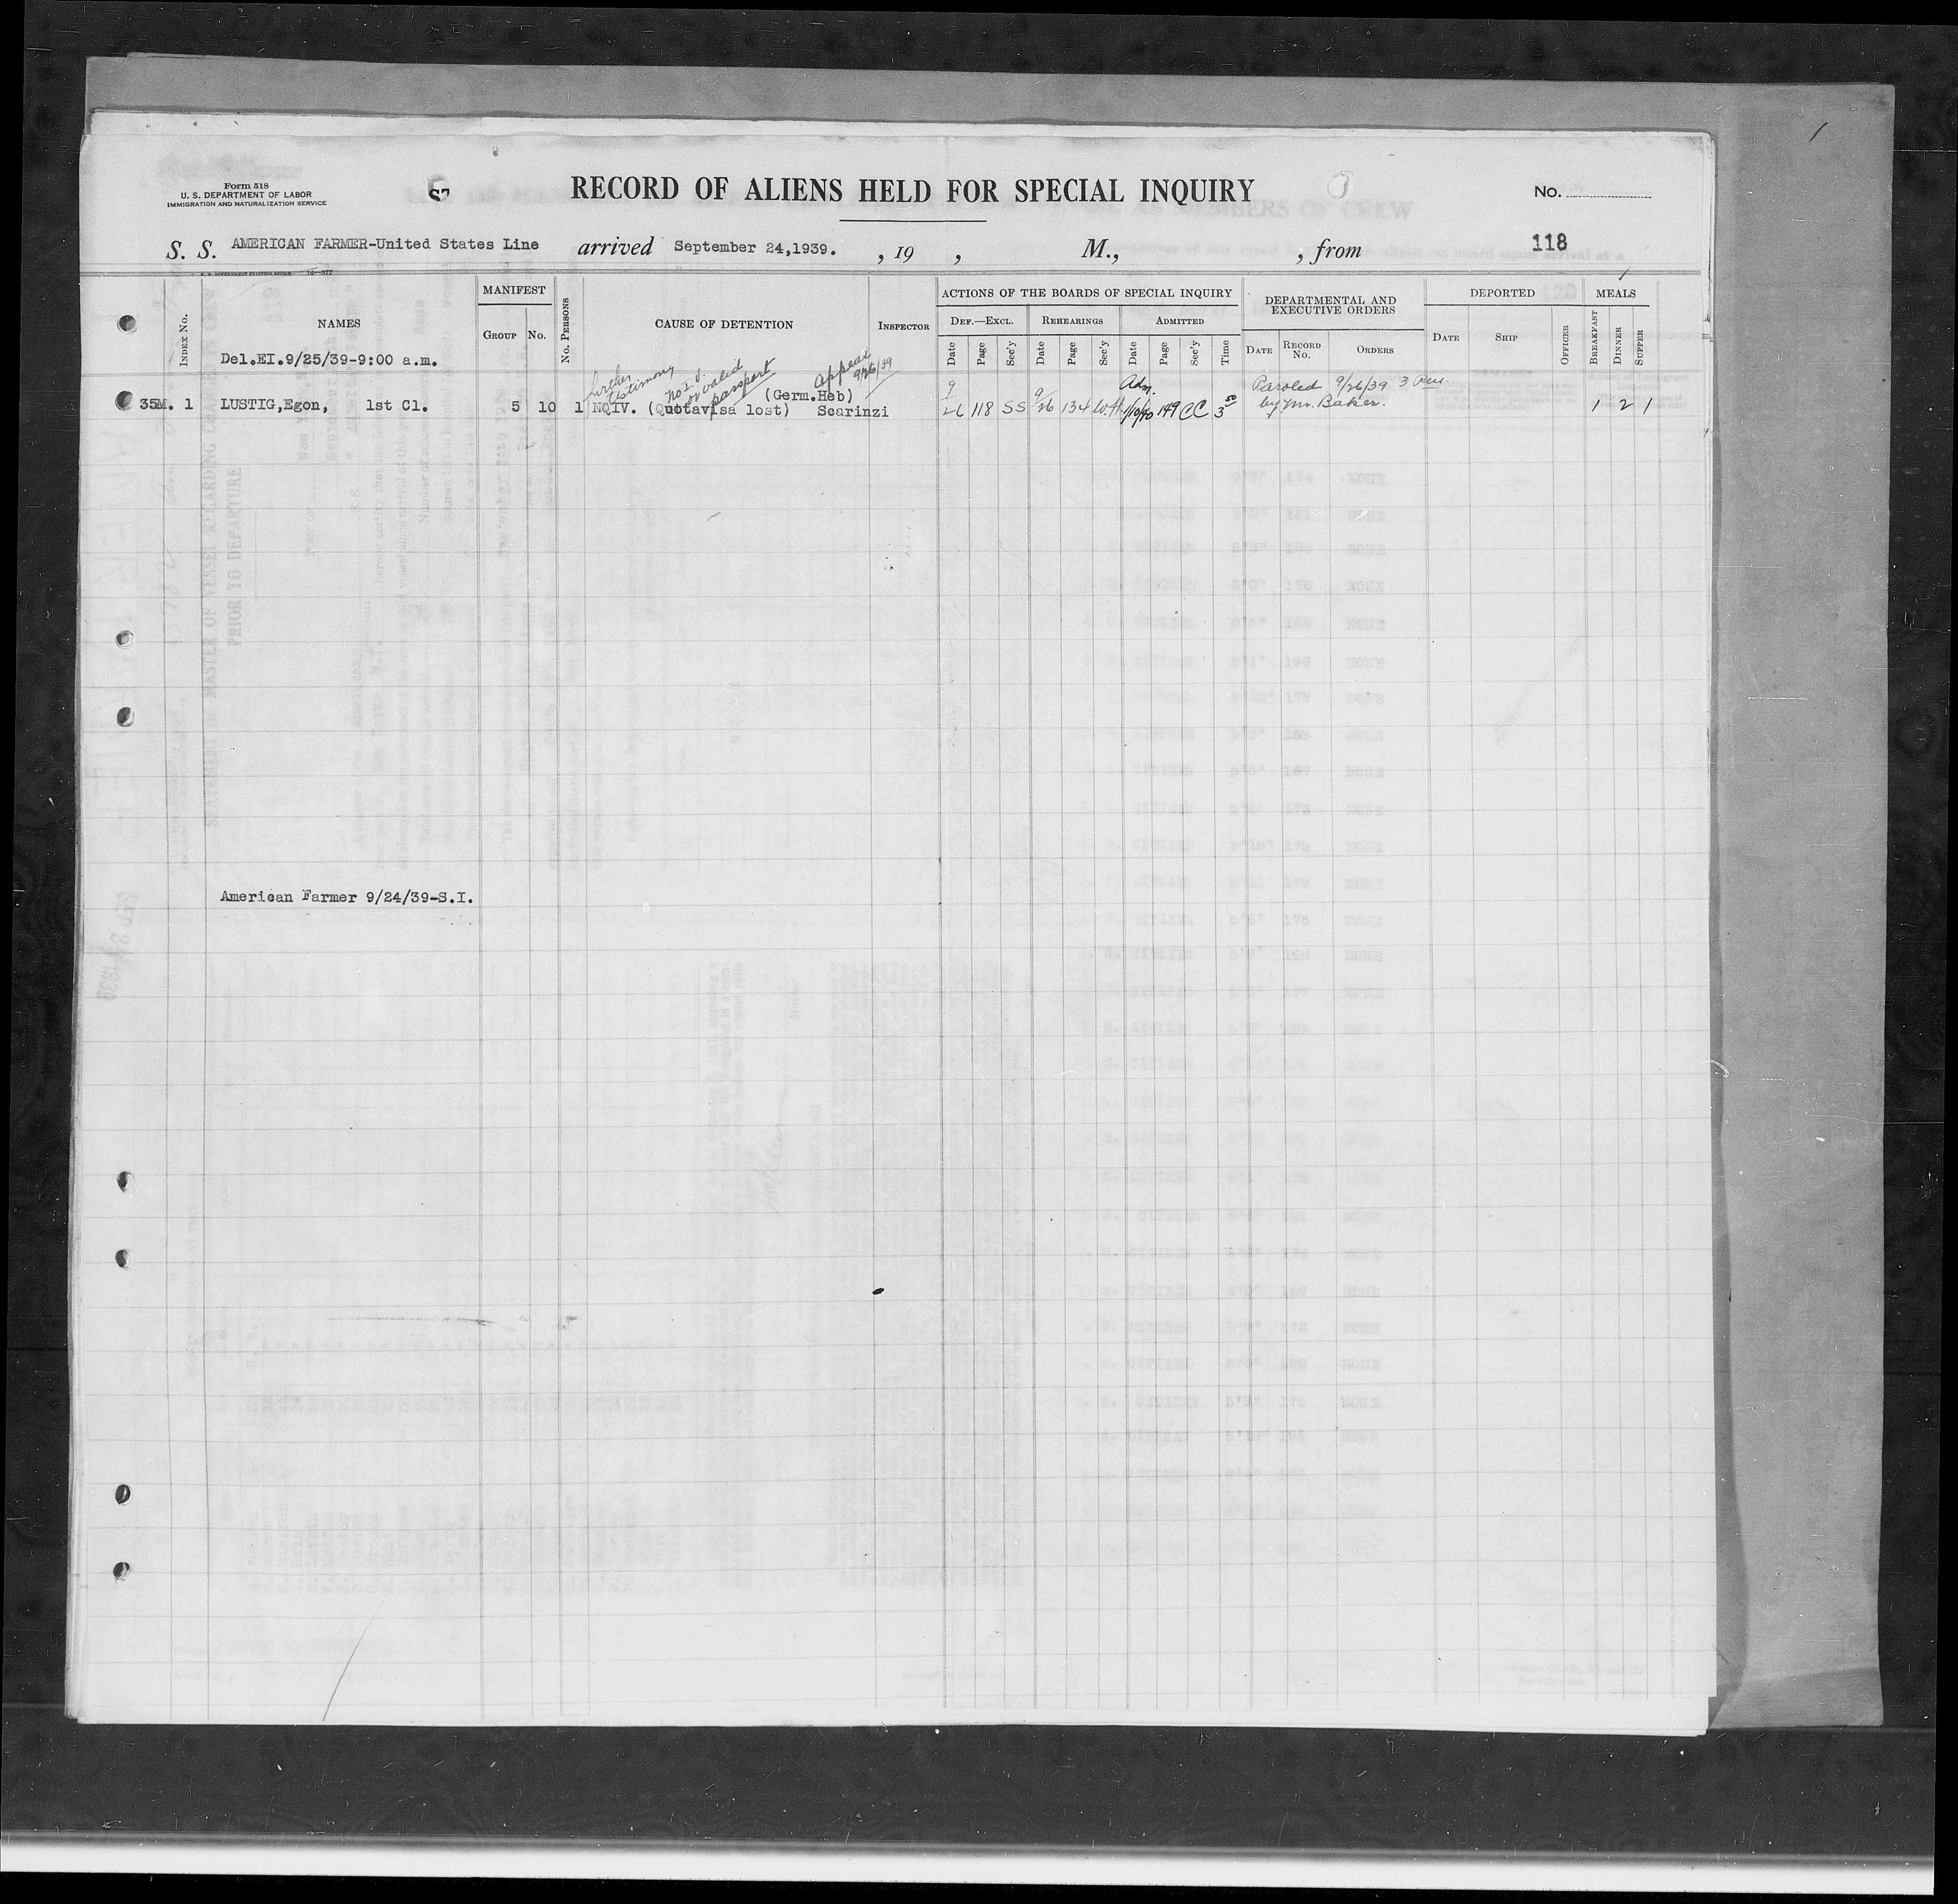 Form 518
U. S. DEPARTMENT OF LABOR
IMMIGRATION AND NATURALIZATION SERVICE
RECORD OF ALIENS HELD FOR SPECIAL INQUIRY
No.
S. S. AMERICAN FARMER-United States Line arrived September 24,1939. , 19 , M., , from 118
INDEX No.
NAMES
Del.EI.9/25/39-9:00 a.m.
MANIFEST
GROUP No.
No. PERSONS
CAUSE OF DETENTION
INSPECTOR
ACTIONS OF THE BOARDS OF SPECIAL INQUIRY
DEF.—EXCL. REHEARINGS ADMITTED
Date Page Sec'y Date Page Sec'y Date Page Sec'y Time
DEPARTMENTAL AND
EXECUTIVE ORDERS
DATE RECORD No. ORDERS
DEPORTED
DATE SHIP OFFICER
MEALS
BREAKFAST DINNER SUPPER
further testimony
no I V.
or valid
passport
appeal
9/26/39
(Germ.Heb)
35M. 1 LUSTIG,Egon, 1st Cl. 5 10 1 NQIV. (Quotavisa lost) Scarinzi
9/26 118 SS 9/26 134 W.H. Adm. 149 CC 3 50
Paroled 9/26/39 3 P.M.
by Mr. Baker.
1 2 1
American Farmer 9/24/39-S.I.